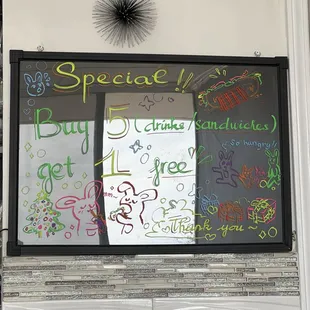 Special!!
Buy 5 (drinks/sandwiches)
get 1 free
So hungry!!
Thank you~